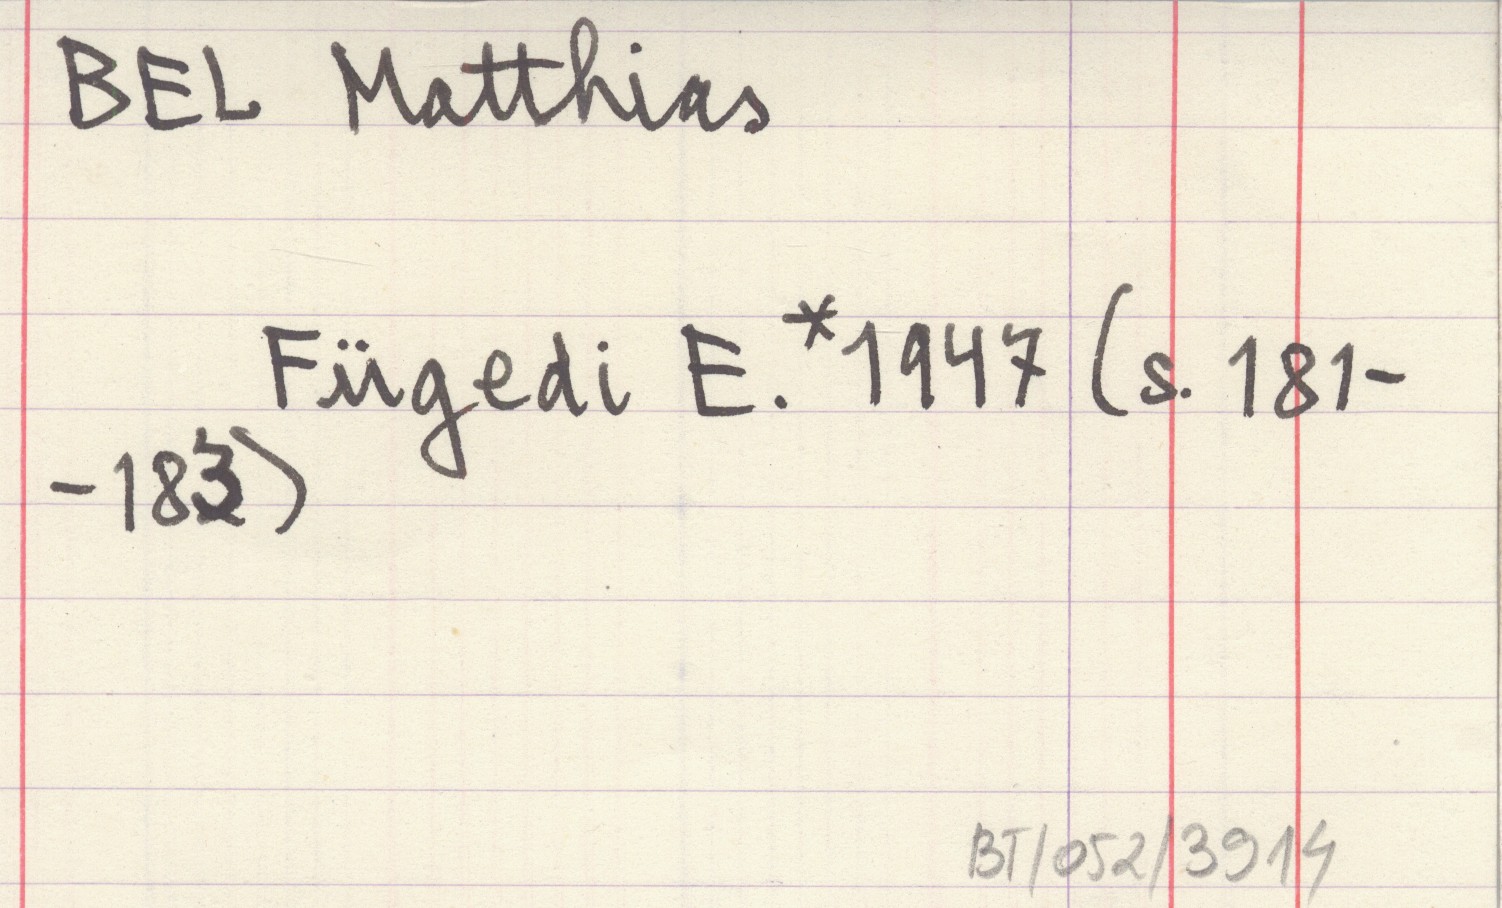 BEL Matthias
Fügedi E.*1947 (s. 181-
-183)
BT/052/3914